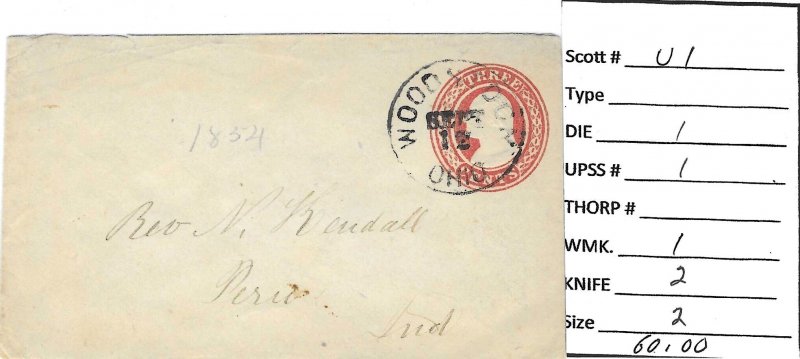 THREE
WOODSTOCK
SEPT
12
OHIO
1854
Rev N. Kendall
Peru
Ind
Scott # U 1
Type
DIE 1
UPSS # 1
THORP #
WMK. 1
KNIFE 2
Size 2
60.00